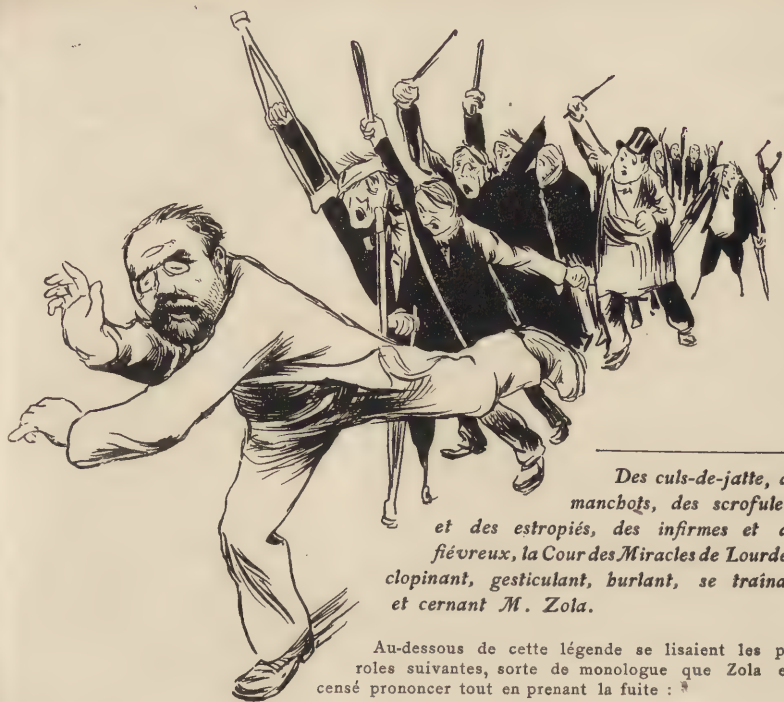 Des culs-de-jatte,
manchots, des
et des estropiés, des infirmes et
fiévreux, la Cour des Miracles de
clopinant, gesticulant, burlant, se
et cernant M. Zola.
Au-dessous de cette légende se lisaient les
roles suivantes, sorte de monologue que Zola
censé prononcer tout en prenant la fuite :